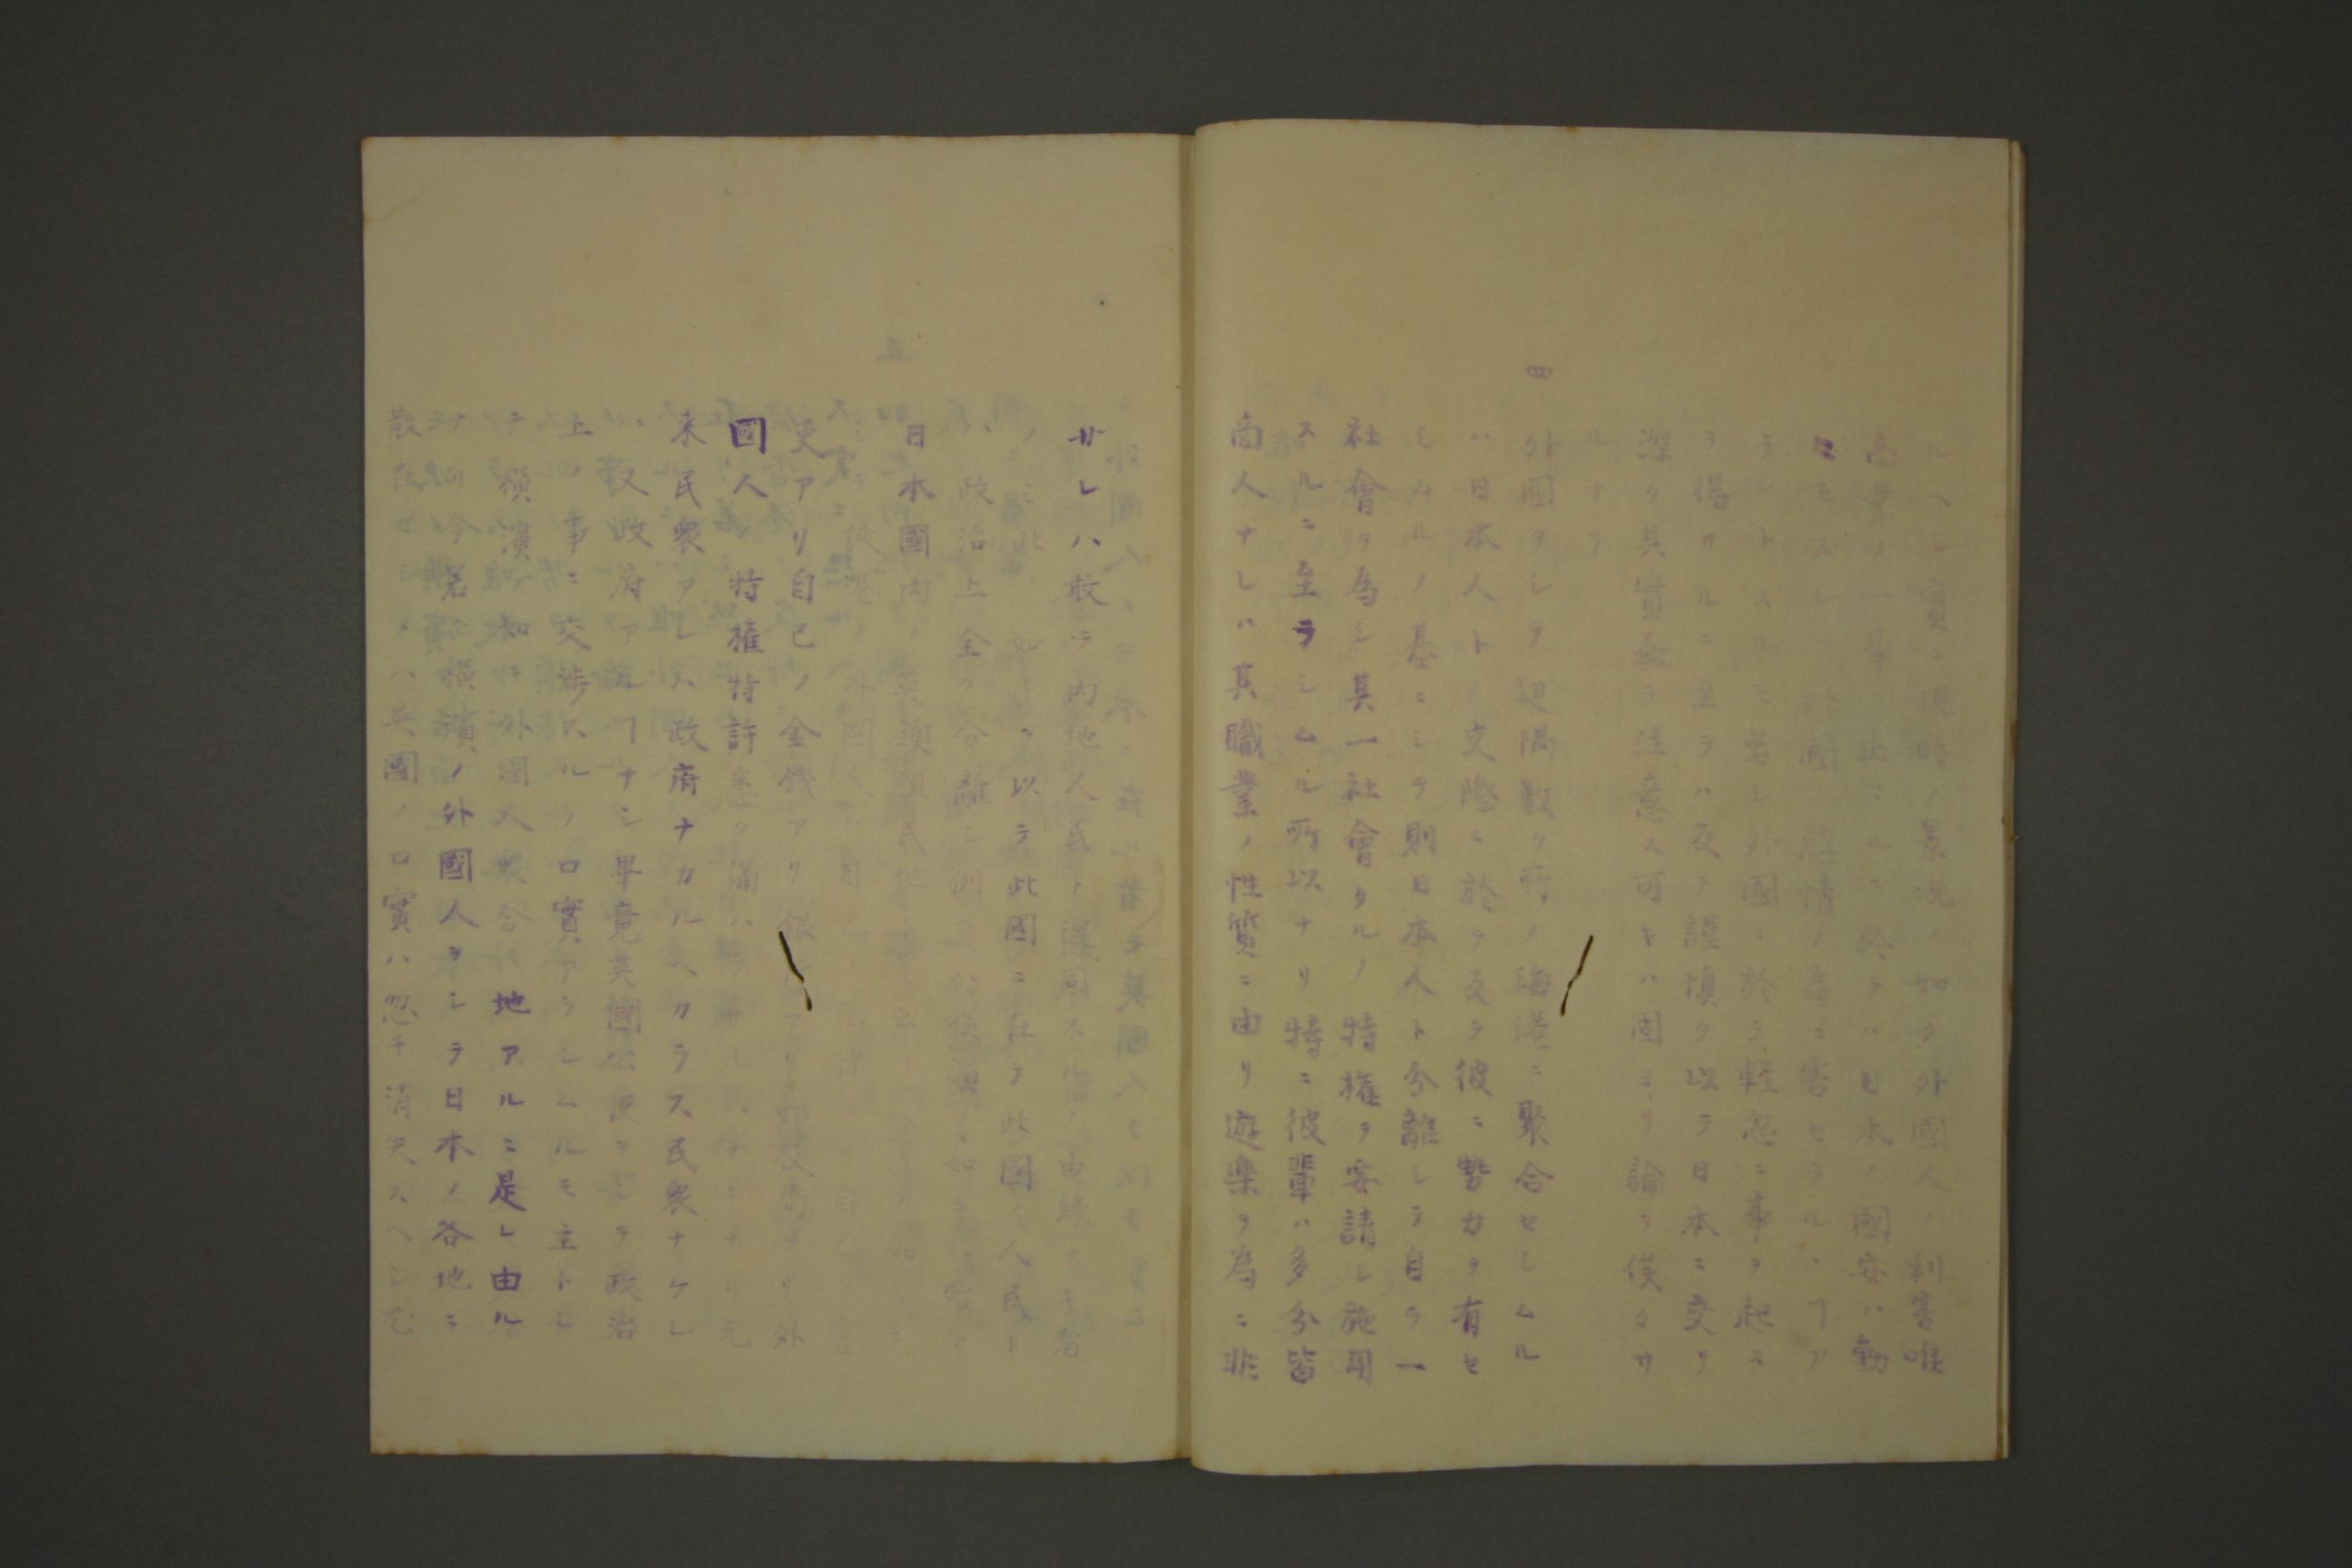 ルヘシ實ニ現時ノ景況ノ如ク外國人ノ利害唯
商業ノ一事ニ止マルニ於テハ日本ノ國安ハ動
モスレハ外國ノ事ニ害セラルヽヿア
ラントスルモ若シ外國ニ於テ軽忽ニ事ヲ起ス
ヲ得サルニ至ラハ反テ謹慎ヲ以テ日本ニ交リ
深ク其實益ヲ注意ス可キハ固ヨリ論ヲ俟タサ
ルナリ
四
外國ヲシテ辺隅数ケ所ノ海港ニ聚合セシムル
ハ日本人トノ交際ニ於テ反テ彼ニ勢力ヲ有セ
シムルノ基ニシテ則日本人ト分離シテ自ラ一
社會ヲ為シ其一社會タルノ特權ヲ要請シ施用
スルニ至ラシムル所以ナリ特ニ彼輩ハ多分皆
商人ナレハ其職業ノ性質ニ由リ遊樂ヲ為ニ非
サレハ敢テ内地人民ト混同スル由縁ナキ者
ノミ此ノ如キヲ以テ此國ニ在テ此國人民ト
ハ政治上全ク分離シ例ヘハ横濱ノ如キハ
日本國内ノ
吏アリ自己ノ金銭アリ銀行アリ郵便局アリ外
國人ノ特權特許悉ク備ハラサルハナリ元
来民衆アレハ政府ナカルヘカラス民衆ナケレ
ハ又政府アルヿナシ畢竟英國公使ヲシテ政治
上ノ事ニ交渉スルノ口實アラシムルモ主トシ
テ横濱ノ如キ外國人聚合ノ地アルニ是レ由ル
ナリ今若シ横濱ノ外國人ヲシテ日本ノ各地ニ
散在セシメハ英國ノ口實ハ忽チ消失スヘシ尤